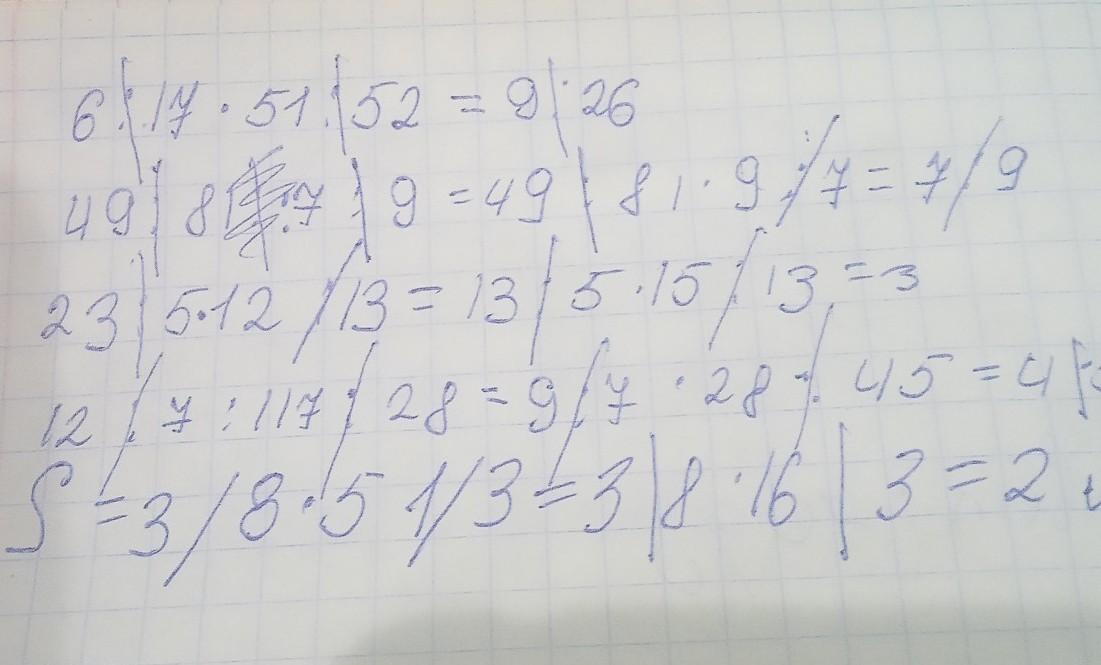 6/17·51/52=9/26
49/8:7/9=49/81·9/7=7/9
23/5·12/13=13/5·15/13=3
12/7:117/28=9/7·28/45=4/
S=3/8·5 1/3=3/8·16/3=2